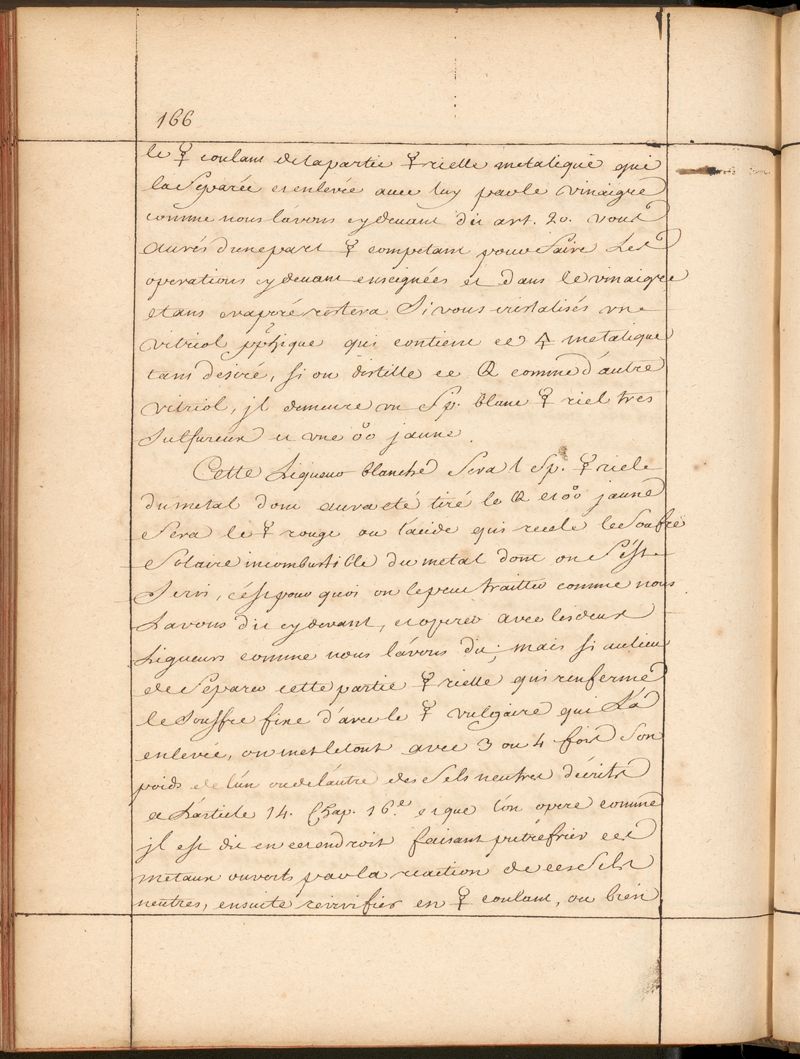 166
le ☿ coulant de la partie ☿rielle metalique qui
la Separée et enlevée avec luy par le vinaigre
comme nous l'avons cy devant dit art. 20. vous
aurés d'une part ☿ competant pour faire les
operations cy devant enseignées et dans le vinaigre
etans evaporé restera Si vous cristalisés vn
vitriol pphique qui contient ce 🜍 metalique
tans desiré, si on distille ce 🜖 comme d'autre
vitriol, jl demeure vn Sp. blanc ☿riel tres
Sulfureux et vne °° jaune.
Cette Liqueur blanche Sera l Sp. ☿riele
du metal dont aura eté tiré le 🜖 et °° jaune
Sera le ☿ rouge ou l'acide qui recele le Soufre
Solaire incombustible du metal dont on S'est
Servi, c'est pour quoi on le peut traitter comme nous
L'avons dit cy devant, et operer avec les deux
Liqueurs comme nous l'avons dit; mais si au lieu
de Separer cette partie ☿rielle qui renferme
le Souffre fixe d'avec le ☿ vulgaire qui L'a
enlevée, on met le tout avec 3 ou 4 fois Son
poids de l'un ou de l'autre des Sels neutres décrits
a L'article 14. Chap. 16.e et que l'on opere comme
jl est dit en cet endroit faisant putréfier ces
metaux ouverts par la reaction de ces Sels
neutres, ensuite revivifier en ☿ coulant, ou bien